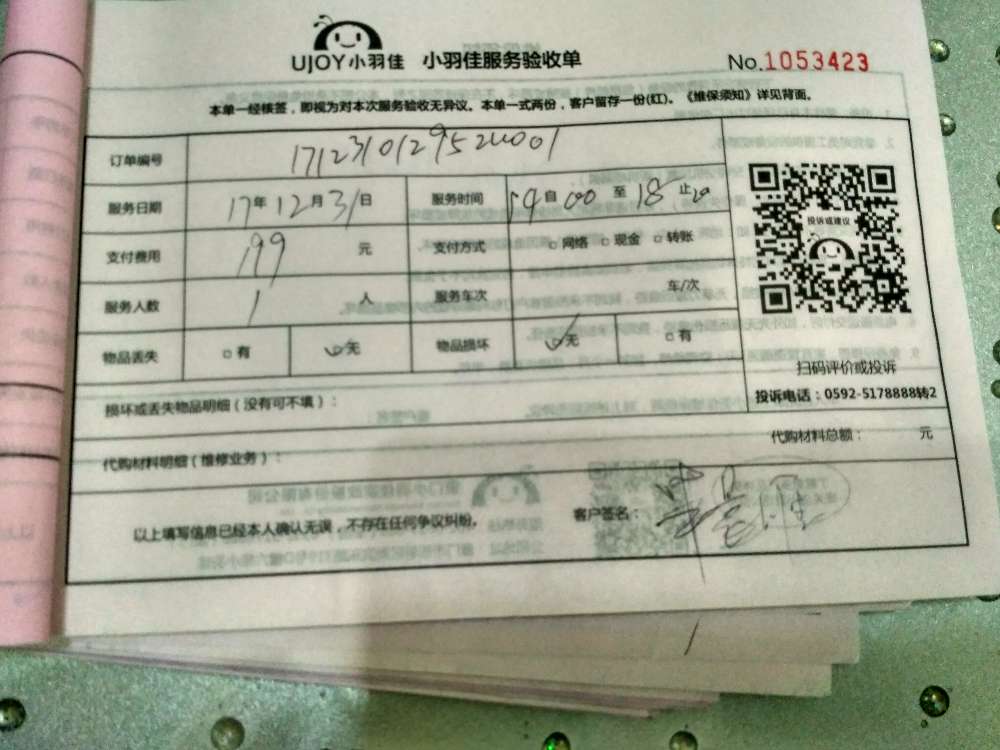 UJOY小羽佳 小羽佳服务验收单 No.1053423
本单一经核签，即视为对本次服务验收无异议。本单一式两份，客户留存一份(红)。《维保须知》详见背面。
订单编号
服务日期 17年12月31日 服务时间 自 至 18 止
支付费用 199 元 支付方式 □网络 □现金 □转账
投诉或建议
服务人数 1 人 服务车次 车/次
物品丢失 □有 无 物品损坏 无 □有
扫码评价或投诉
投诉电话：0592-5178888转2
损坏或丢失物品明细（没有可不填）：
代购材料明细（维修业务）： 代购材料总额： 元
以上填写信息已经本人确认无误，不存在任何争议纠纷。 客户签名：